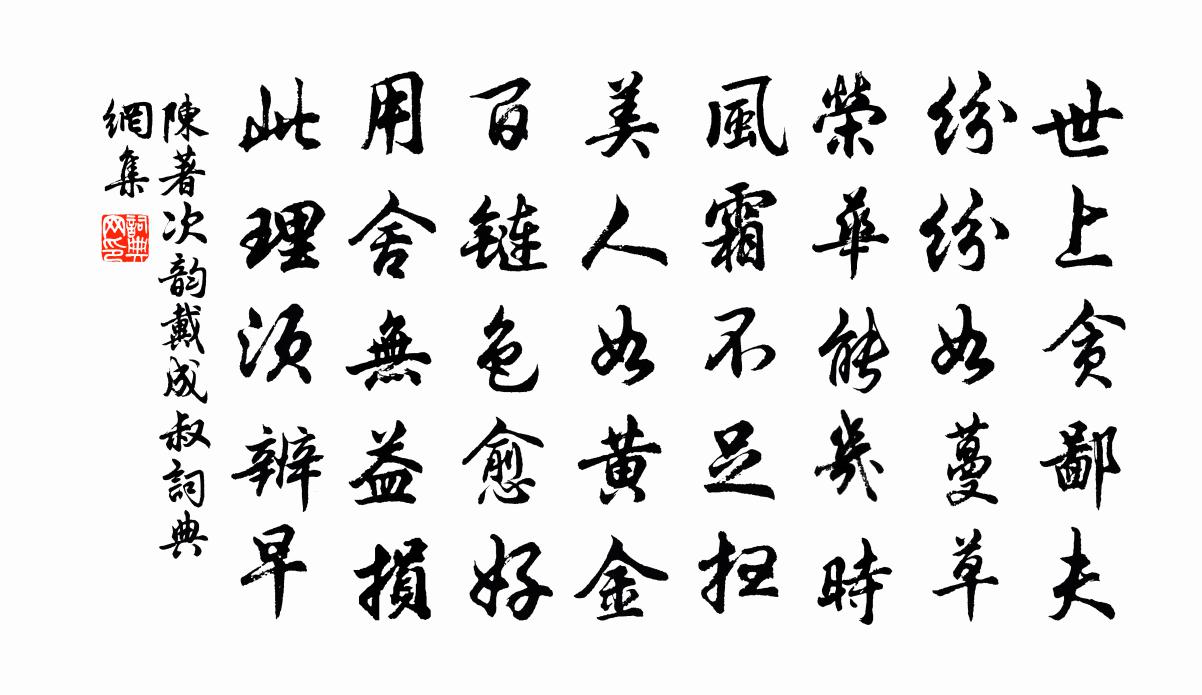 世上贪鄙夫
纷纷如蔓草
榮華能幾時
風霜不足扫
美人如黄金
百链色愈好
用舍無益損
此理须辨早
陳著次韵戴成叔詞典
網集
詞典网印